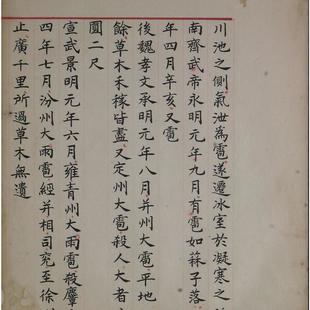 川池之側氣泄為雹遂遷冰室於凝寒之
南齊武帝永明元年九月有雹如蒜子落
年四月辛亥又雹
後魏孝文承明元年八月并州大雹平地
餘草木禾稼皆盡又定州大雹殺人大者
圓二尺
宣武景明元年六月雍青州大雨雹殺麞
四年七月汾州大雨雹經并相司兗至徐
止廣千里所過草木無遺